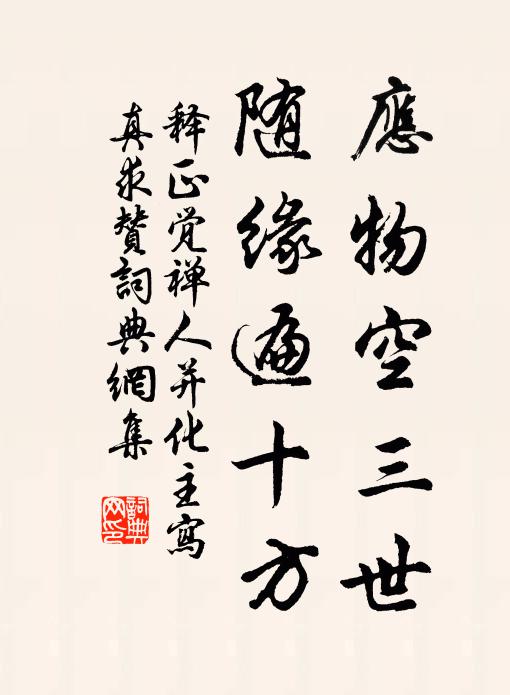 應物空三世
随緣遍十方
释正觉禅人并化主寫
真求赞詞典網集
詞典網印